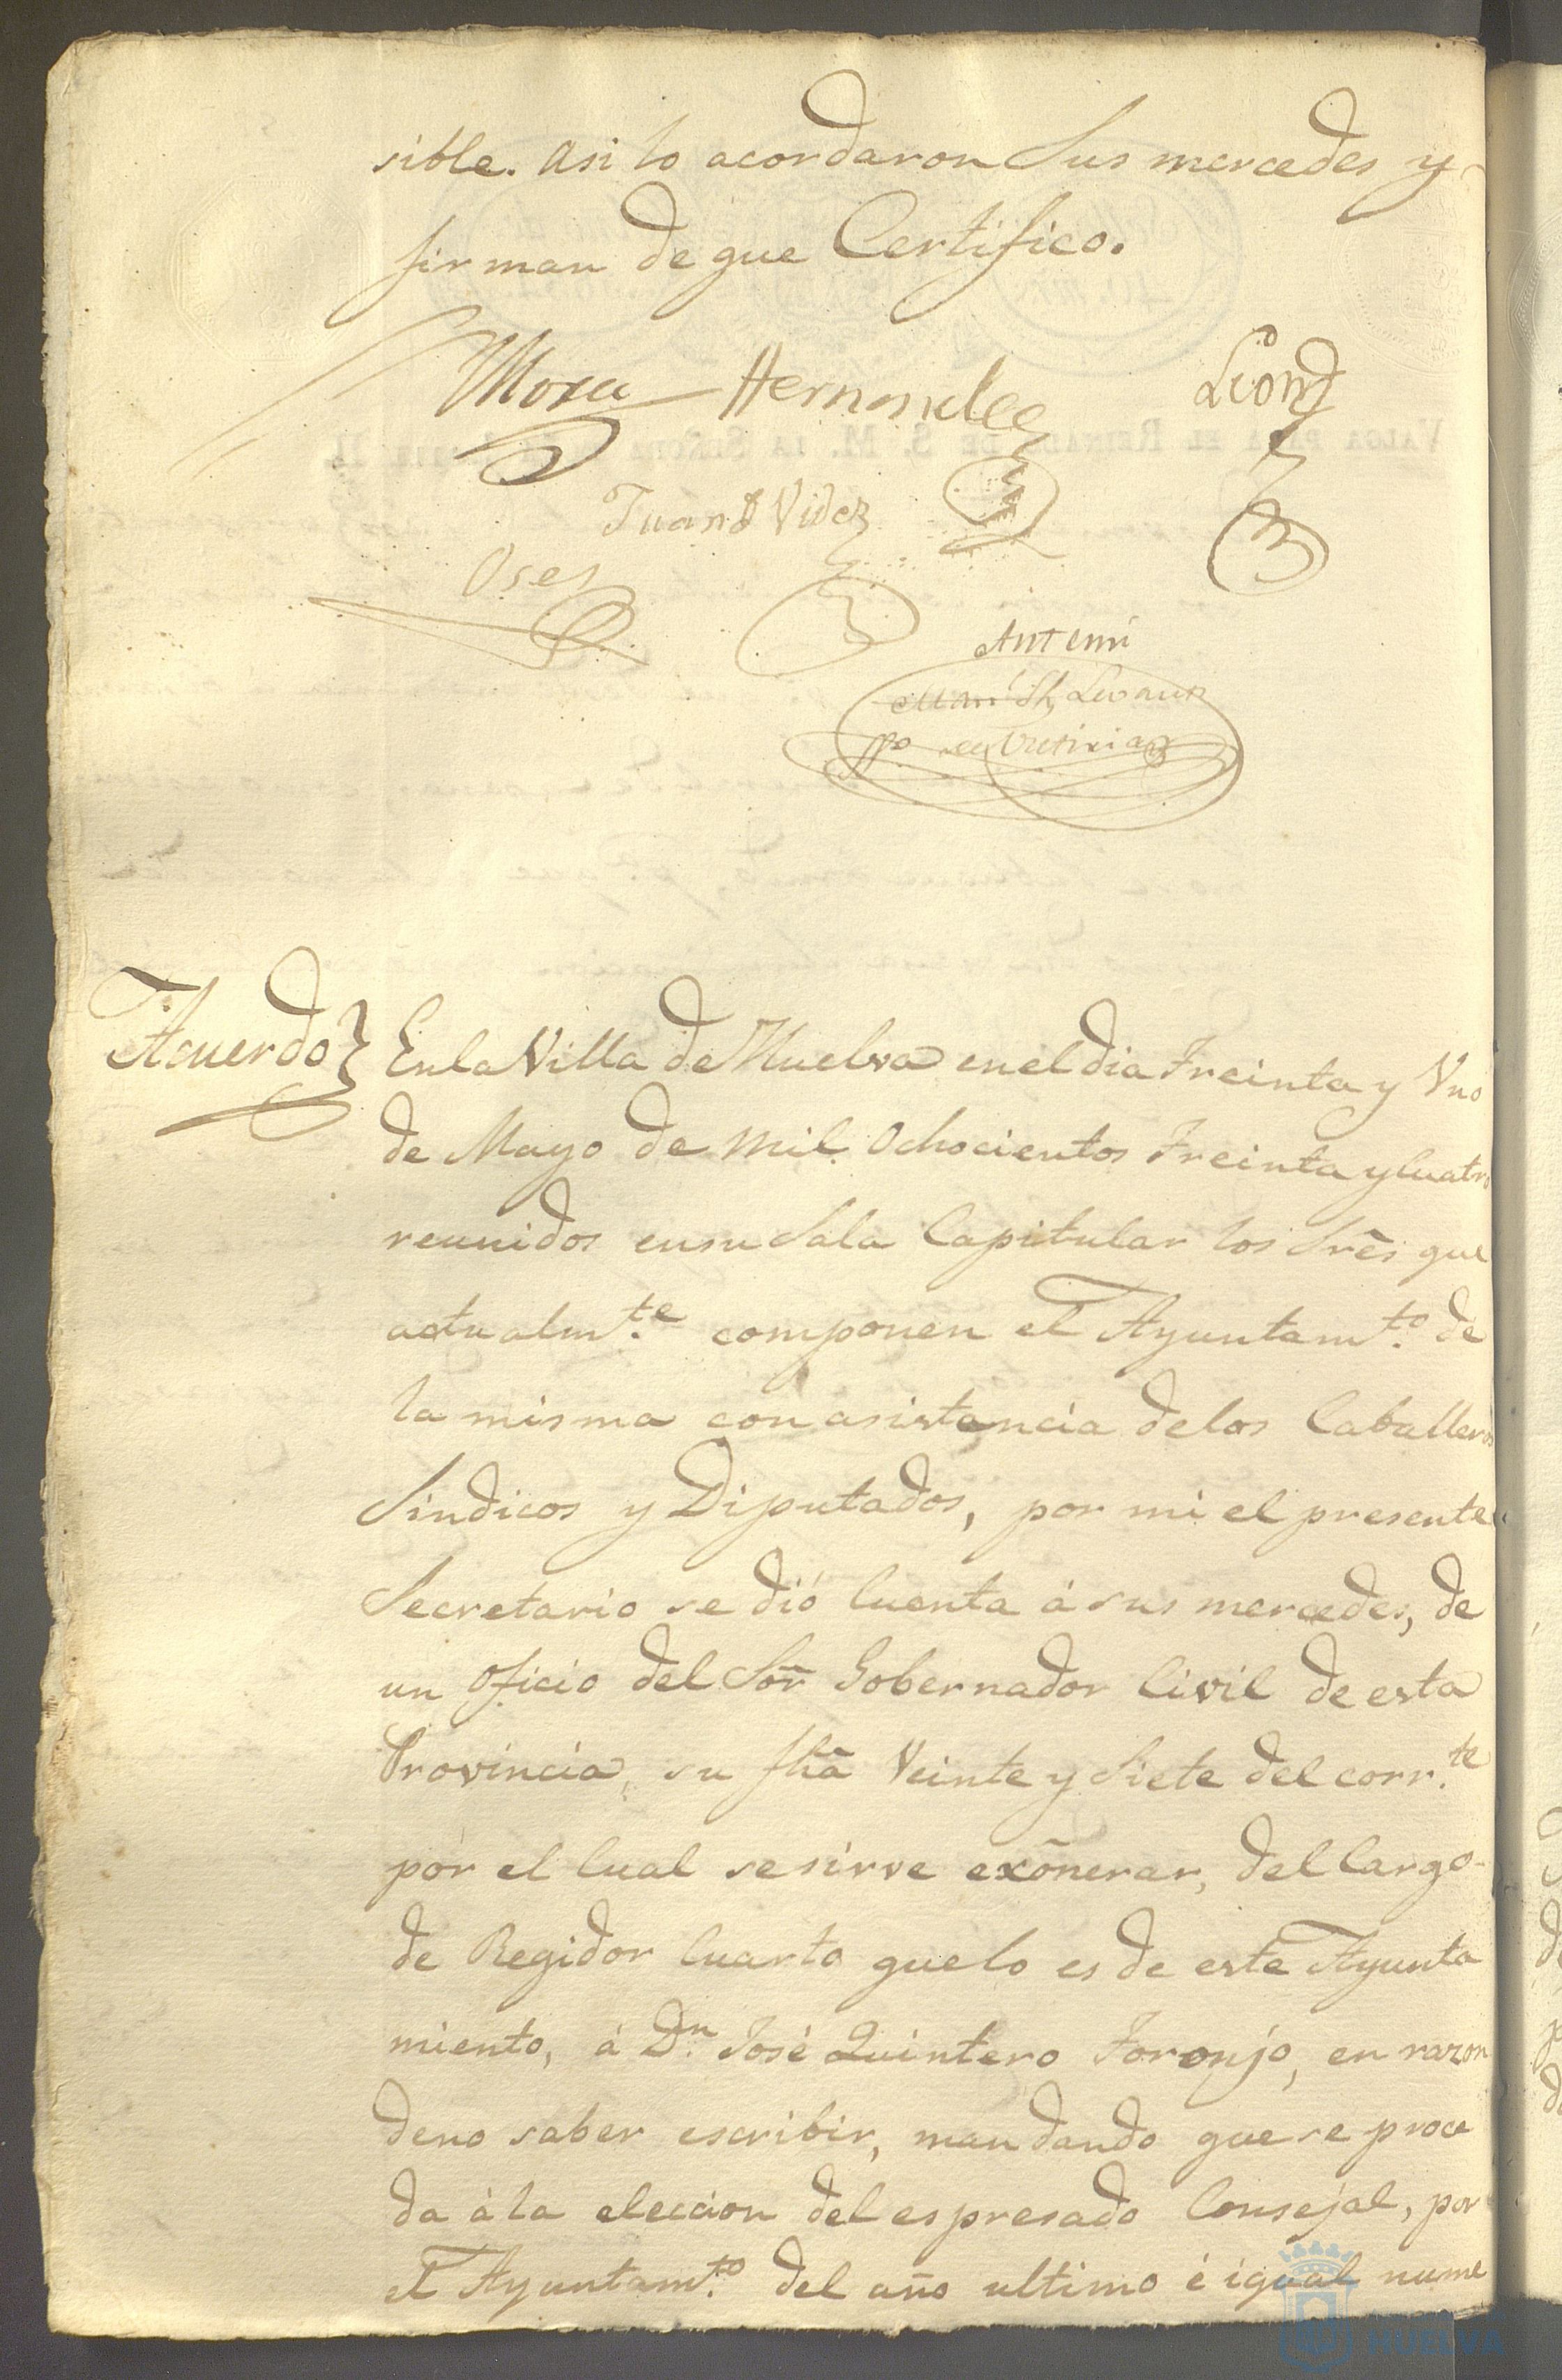 sible. Asi lo acordaron Sus mercedes y
firman de que Certifico.
Mora Hernandez Leon
Juan Videz
Oses
Antemi
Acuerdo En la Villa de Huelva en el dia treinta y Uno
de Mayo de mil Ochocientos treinta y Cuatro
reunidos en su Sala Capitular los Sres que
actualmte componen el Ayuntamto de
la misma con asistencia de los Caballeros
Sindicos y Diputados, por mi el presente
Secretario se dió Cuenta á sus mercedes, de
un Oficio del Sor Gobernador Civil de esta
Provincia, su fha Veinte y Siete del corrte
por el Cual se sirve exônerar, del Cargo
de Regidor Cuarto que lo es de este Ayunta
miento, á Dn José Quintero Toronjo, en razon
de no saber escribir, mandando que se proce
da á la eleccion del espresado Consejal, por
el Ayuntamto del año ultimo é igual nume
HUELVA